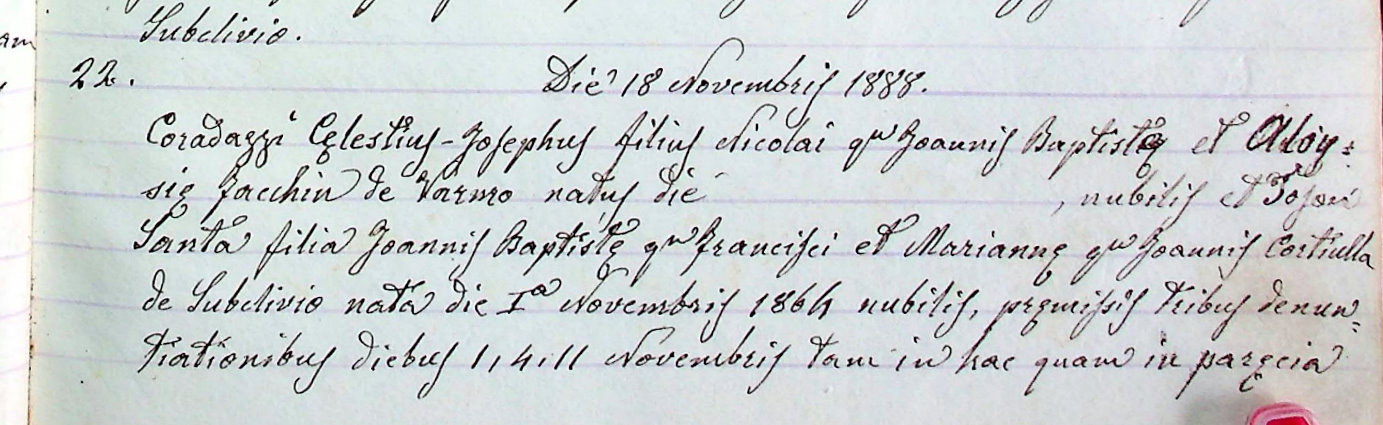 Subclivio.
22. Die 18 Novembris 1888.
Coradazzi Cęlestius-Josephus filius Nicolai qm Joannis Baptistę et Aloy=
się Zacchin de Varmo natus die , nubilis et
Santa filia Joannis Baptistę qm Francisci et Mariannę qm Joannis
de Subclivio nata die Iª Novembris 1864 nubilis, pręmissis tribus denun=
tiationibus diebus 1, 4, 11 Novembris tam in hac quam in paręcia